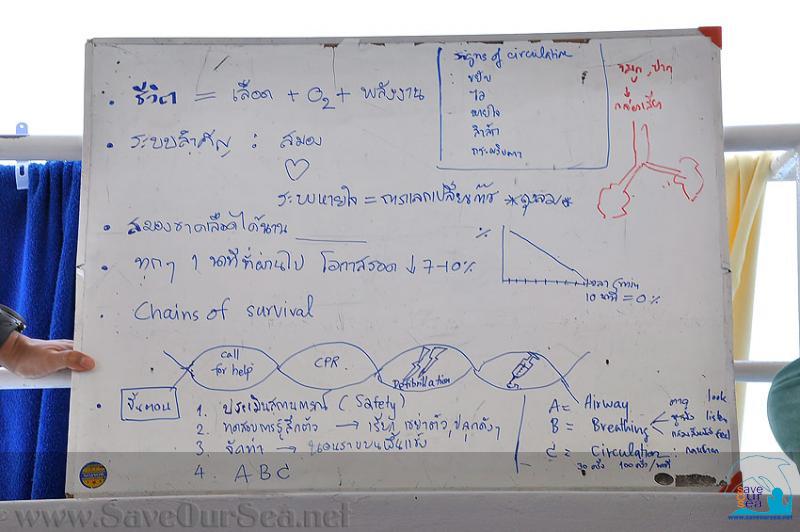 signs of circulation
ขยับ
ไอ
หายใจ
สำลัก
กระพริบตา
จมูก, ปาก
กล่องเสียง
• ชีวิต = เลือด + O2 + พลังงาน
• ระบบสำคัญ : สมอง
ระบบหายใจ = การแลกเปลี่ยนก๊าซ * ถุงลม *
• สมองขาดเลือดได้นาน
• ทุกๆ 1 นาทีที่ผ่านไป โอกาสรอด ↓ 7-10%
%
เวลา (นาที)
10 นาที = 0%
• Chains of survival
call for help
CPR
Defibrillation
ขั้นตอน
1. ประเมินสถานการณ์ (Safety)
2. ทดสอบการรู้สึกตัว → เรียก, เขย่าตัว, ปลุกดังๆ
3. จัดท่า → นอนราบบนพื้นแข็ง
4. A B C
A = Airway
B = Breathing
ตาดู look
หูฟัง listen
แก้มสัมผัส feel
C = Circulation :
30 ครั้ง 100 ครั้ง/นาที
www.SaveOurSea.net
save
Our
Sea
www.saveoursea.net